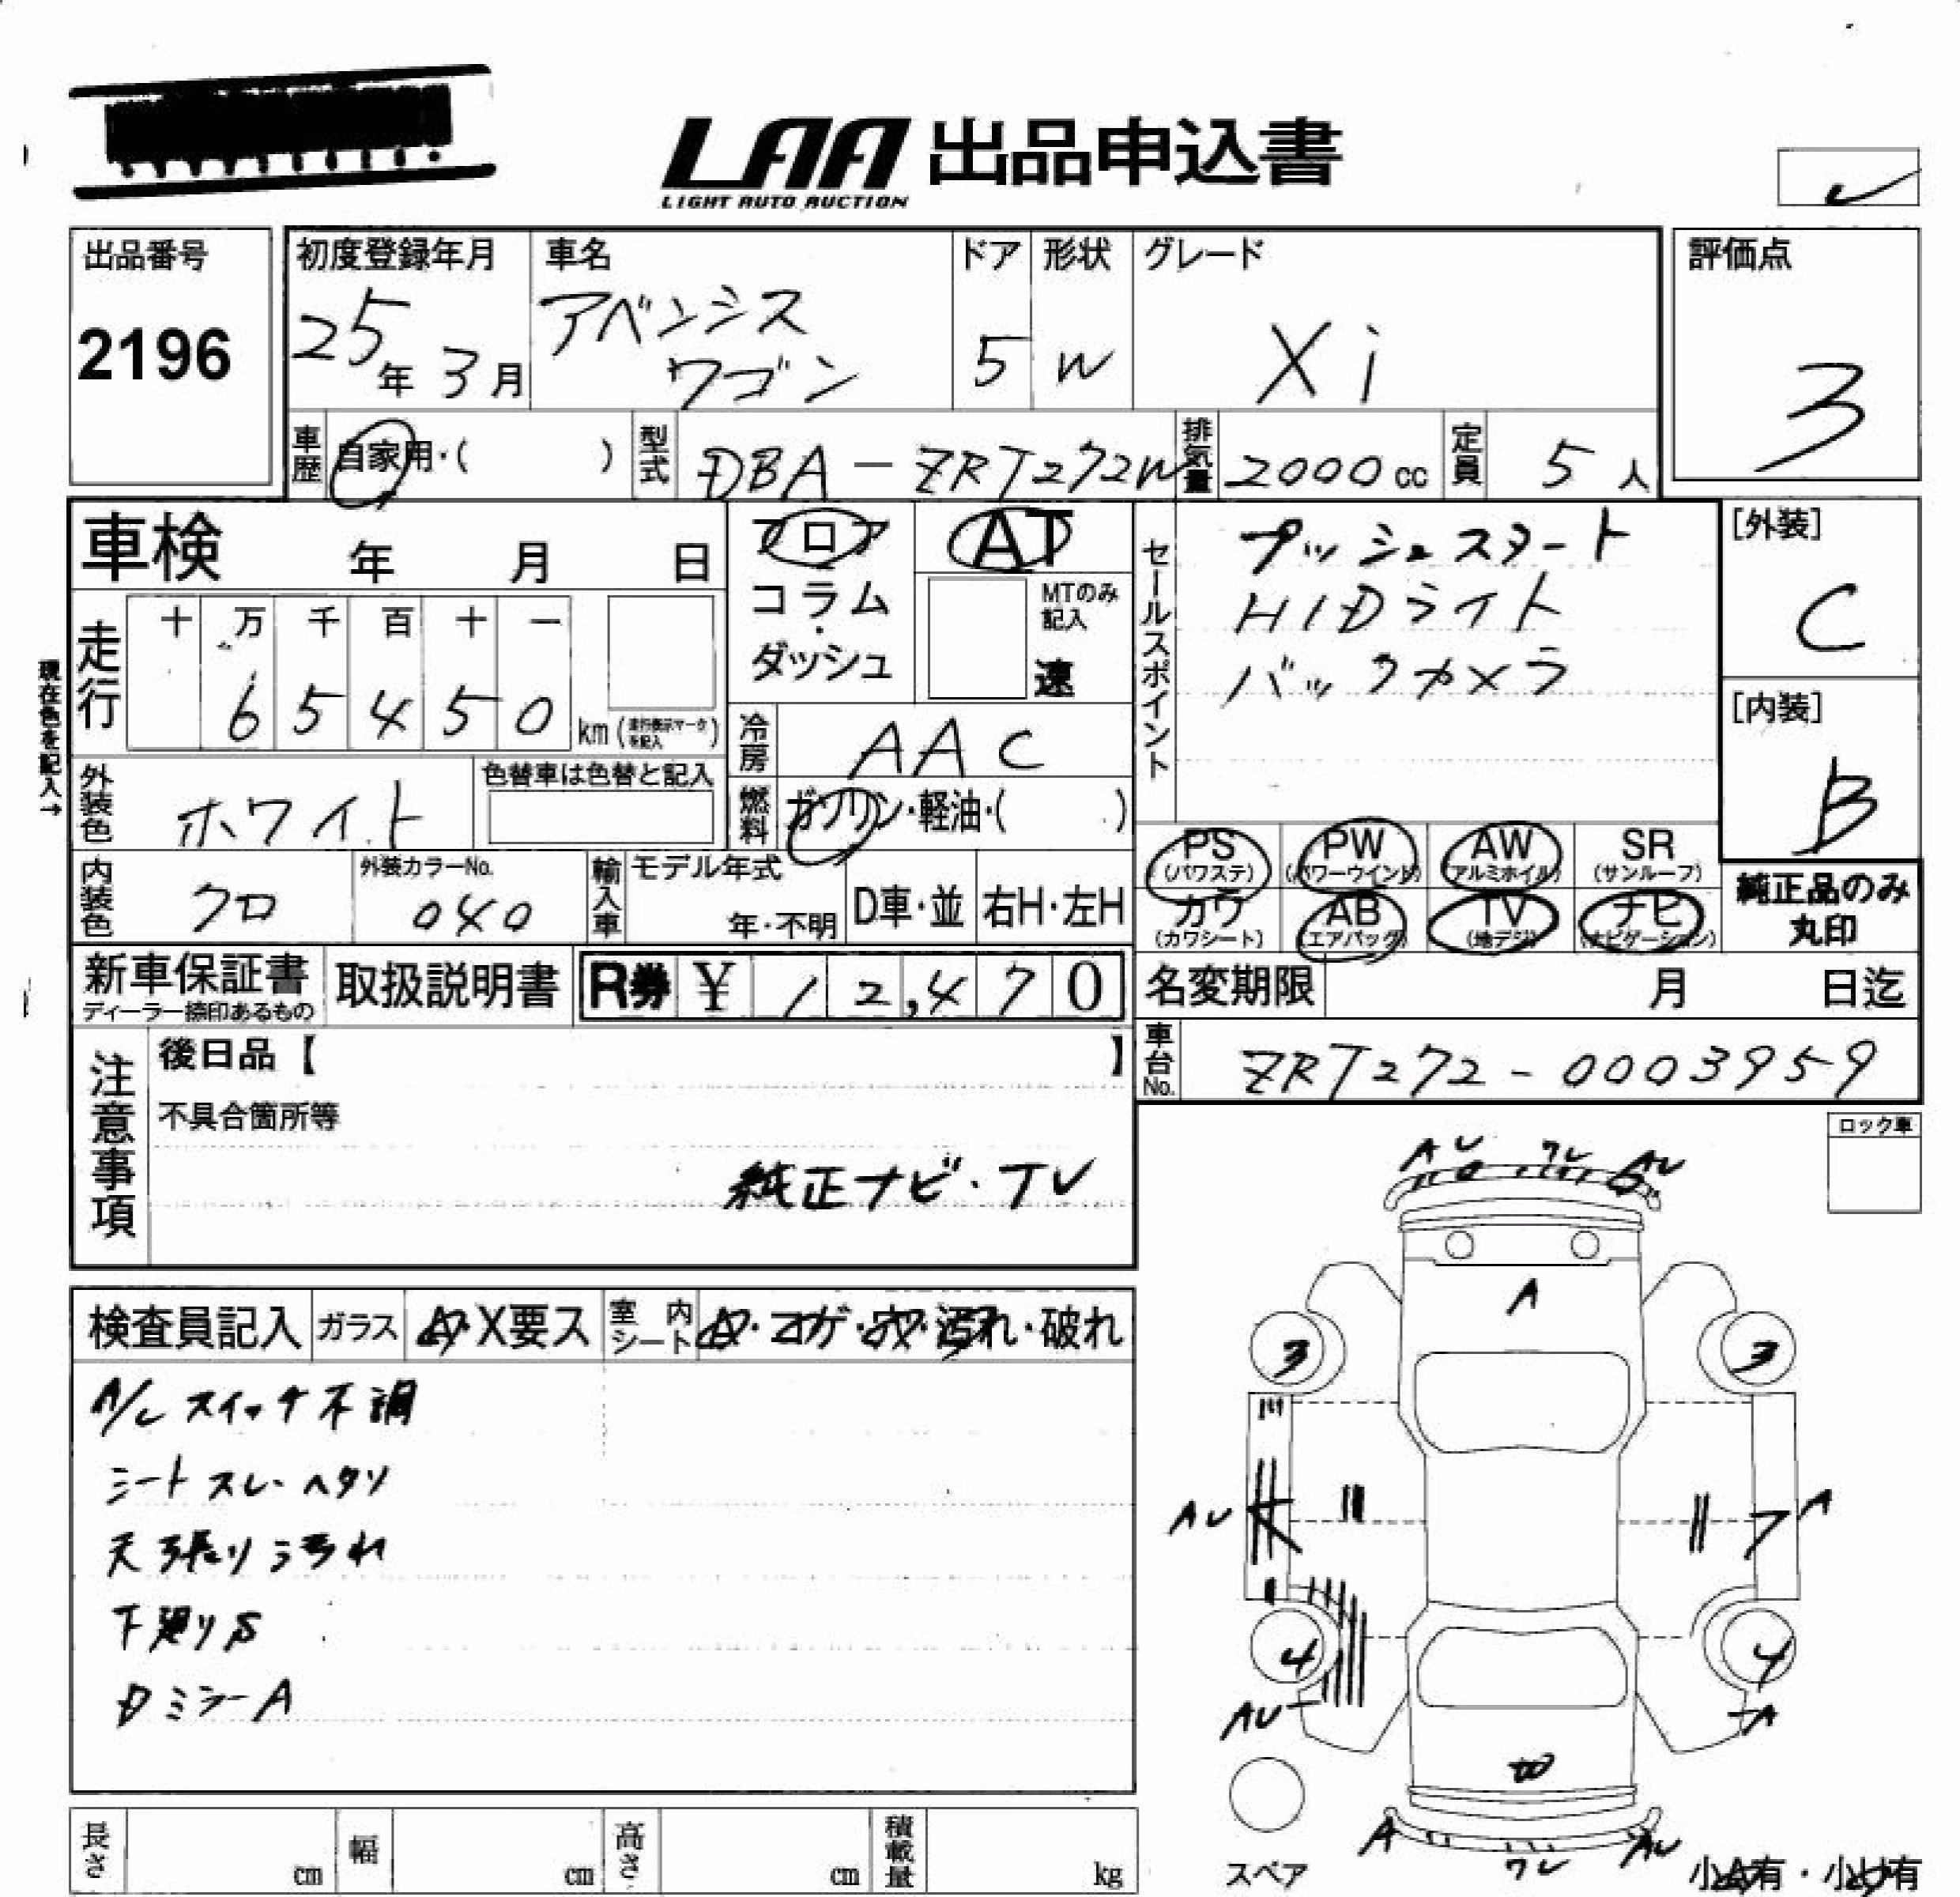 LAA 出品申込書
LIGHT AUTO AUCTION
出品番号
2196
初度登録年月
25年3月
車名
アベンシス
ワゴン
ドア
5
形状
W
グレード
Xi
評価点
3
車歴
自家用・( )
型式
DBA-ZRT272W
排気量
2000cc
定員
5人
車検 年 月 日
フロア
コラム
・
ダッシュ
AT
MTのみ
記入
速
セールスポイント
プッシュスタート
HIDライト
バックカメラ
[外装]
C
[内装]
B
現在色を記入→
走行
十 万 千 百 十 一
6 5 4 5 0 km (走行表示マークを記入)
冷房
AAC
外装色
ホワイト
色替車は色替と記入
燃料
ガソリン・軽油・( )
PS
(パワステ)
PW
(パワーウインド)
AW
(アルミホイル)
SR
(サンルーフ)
カワ
(カワシート)
AB
(エアバッグ)
TV
(地デジ)
ナビ
(ナビゲーション)
純正品のみ
丸印
内装色
クロ
外装カラーNo.
040
輸入車
モデル年式
年・不明
D車・並
右H・左H
新車保証書
ディーラー捺印あるもの
取扱説明書
R券 ¥ 12,470
名変期限 月 日迄
車台No.
ZRT272-0003959
注意事項
後日品【 】
不具合箇所等
純正ナビ・TV
ロック車
検査員記入
ガラス
A・X要ス
室内
シート
・コゲ・穴・汚れ・破れ
A/C スイッチ不調
シートスレ・ヘタリ
天張り汚れ
下廻りS
AU
ワレ
AU
A
3
3
AU
A
4
4
AU
A
A
ワレ
AU
スペア
小A有・小U有
長さ cm
幅 cm
高さ cm
積載量 kg